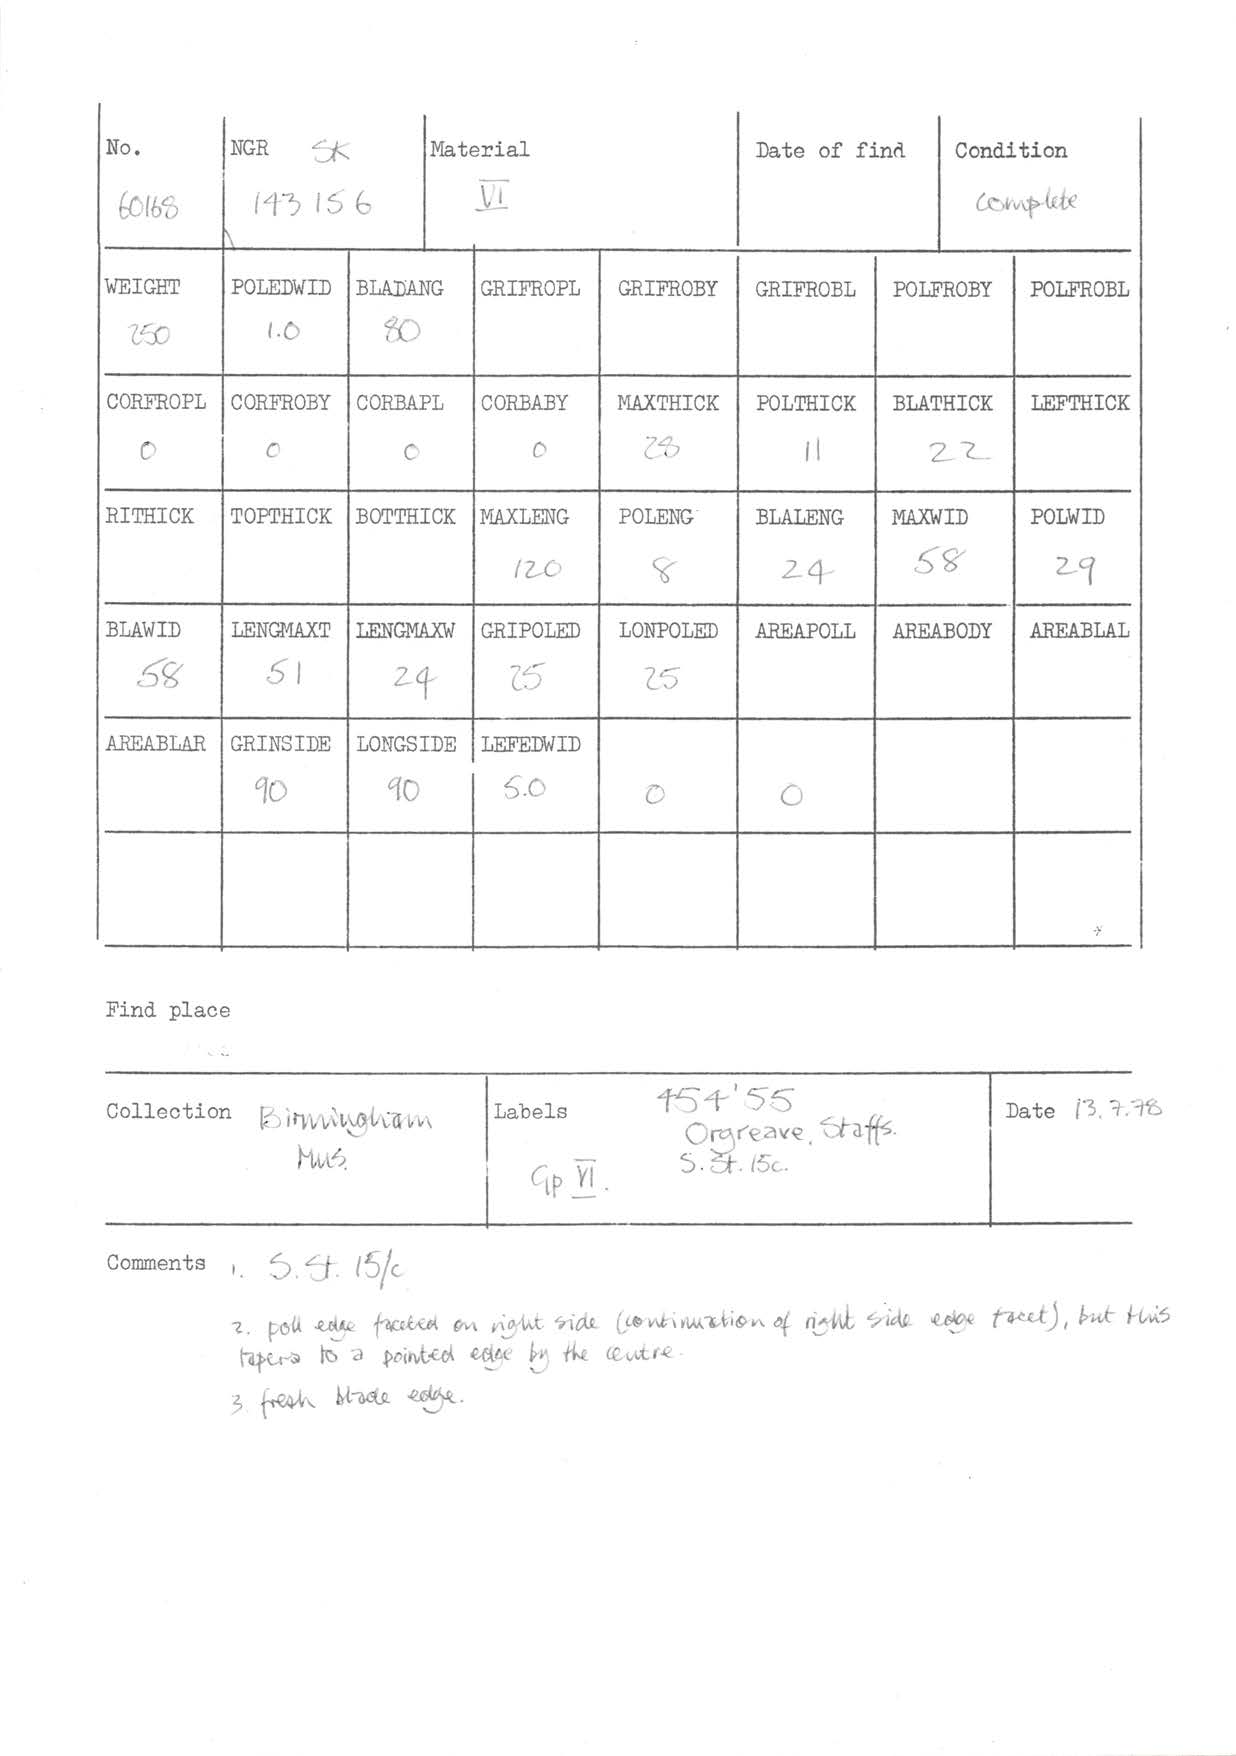 No. NGR SK Material Date of find Condition
60168 143 156 VI complete
WEIGHT POLEDWID BLADANG GRIFROPL GRIFROBY GRIFROBL POLFROBY POLFROBL
250 1.0 80
CORFROPL CORFROBY CORBAPL CORBABY MAXTHICK POLTHICK BLATHICK LEFTHICK
0 0 0 0 28 11 22
RITHICK TOPTHICK BOTTHICK MAXLENG POLENG BLALENG MAXWID POLWID
120 8 24 58 29
BLAWID LENGMAXT LENGMAXW GRIPOLED LONPOLED AREAPOLL AREABODY AREABLAL
58 51 24 25 25
AREABLAR GRINSIDE LONGSIDE LEFEDWID
90 90 5.0 0 0
Find place
Collection Birmingham
Mus.
Labels 454'55
Orgreave, Staffs.
S. St. 15c.
Gp VI.
Date 13.7.78
Comments 1. S. St. 15/c
2. poll edge faceted on right side (continuation of right side edge facet), but this
tapers to a pointed edge by the centre.
3. fresh blade edge.